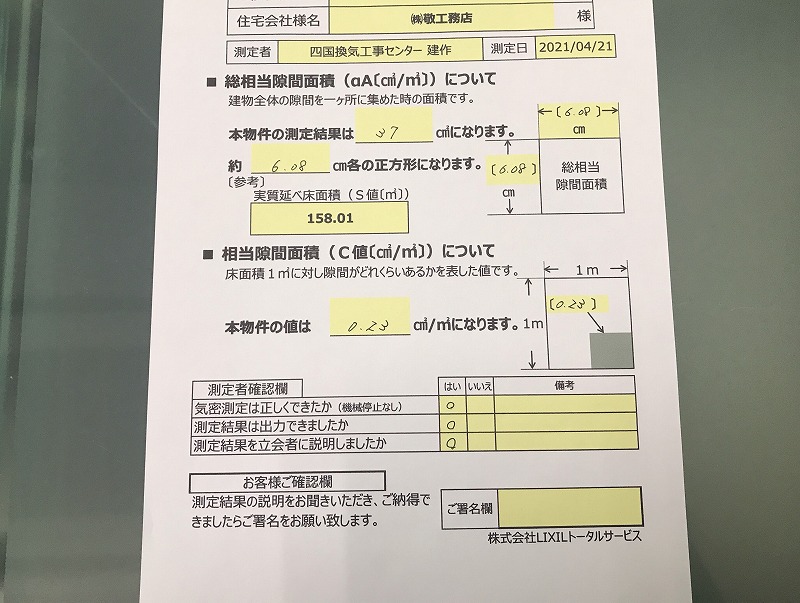 住宅会社様名 ㈱敬工務店 様
測定者 四国換気工事センター 建作 測定日 2021/04/21
■ 総相当隙間面積（αA〔㎠/㎡〕）について
建物全体の隙間を一ヶ所に集めた時の面積です。
本物件の測定結果は 37 ㎠になります。
約 6.08 ㎝各の正方形になります。
〔参考〕
実質延べ床面積（Ｓ値〔㎡〕）
158.01
〔6.08〕
㎝
〔6.08〕
㎝
総相当
隙間面積
■ 相当隙間面積（Ｃ値〔㎠/㎡〕）について
床面積１㎡に対し隙間がどれくらいあるかを表した値です。
本物件の値は 0.23 ㎠/㎡になります。
1ｍ
1ｍ
〔0.23〕
測定者確認欄 はい いいえ 備考
気密測定は正しくできたか（機械停止なし） ○
測定結果は出力できましたか ○
測定結果を立会者に説明しましたか ○
お客様ご確認欄
測定結果の説明をお聞きいただき、ご納得で
きましたらご署名をお願い致します。
ご署名欄
株式会社LIXILトータルサービス